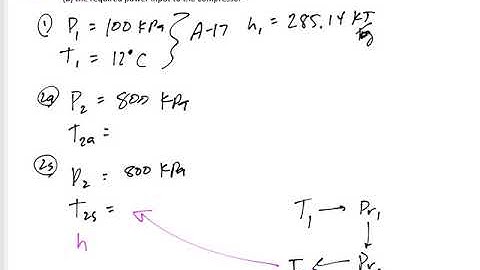 (b) the required power input to the compressor
① P₁ = 100 kPa } A-17 h₁ = 285.14 kJ/kg
T₁ = 12°C
2a P₂ = 800 kPa
T₂ₐ =
2s P₂ = 800 kPa
T₂ₛ =
T₁ → Pr₁
h
T ← Pr₂